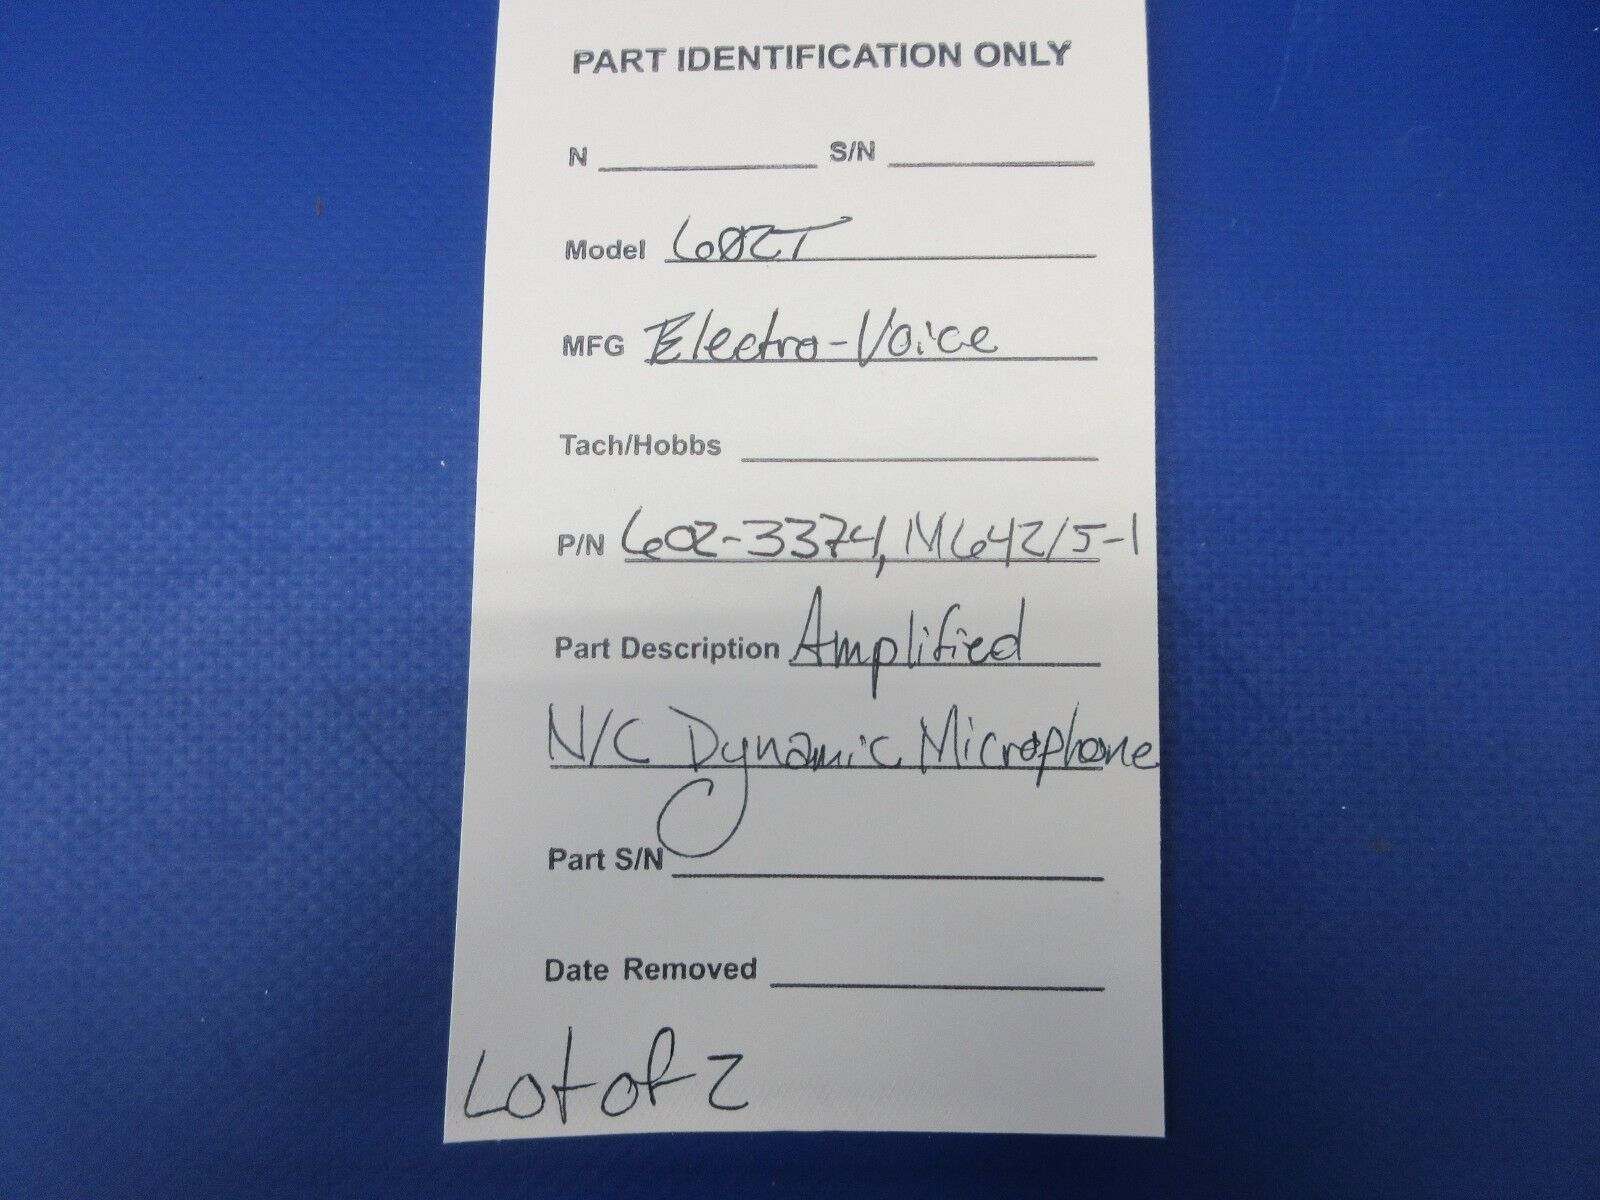 PART IDENTIFICATION ONLY
N S/N
Model 602T
MFG Electro-Voice
Tach/Hobbs
P/N 602-3374, M642/5-1
Part Description Amplified
N/C Dynamic Microphone
Part S/N
Date Removed
Lot of 2